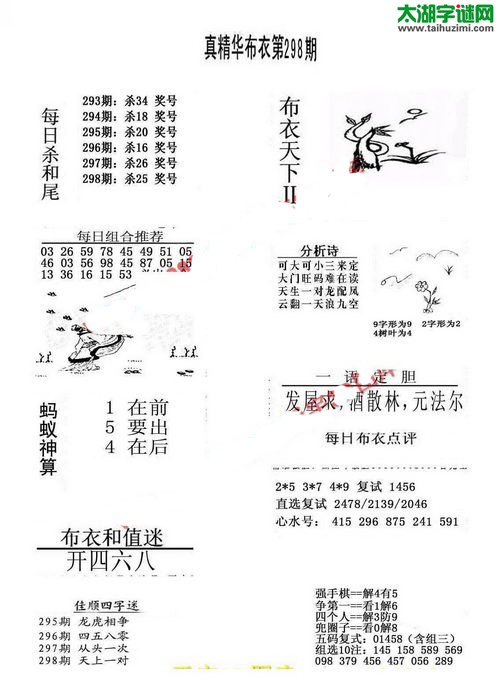 太湖字谜网
www.taihuzimi.com
真精华布衣第298期
每日杀和尾
293期: 杀34 奖号
294期: 杀18 奖号
295期: 杀20 奖号
296期: 杀16 奖号
297期: 杀26 奖号
298期: 杀25 奖号
布衣天下II
每日组合推荐
03 26 59 78 45 49 51 05
46 03 56 98 45 87 05 15
13 36 16 15 53
分析诗
可大可小三来定
大门旺码难在读
天生一对龙配凤
云翻一天浪九空
9字形为9 2字形为2
4树叶为4
蚂蚁神算
1 在前
5 要出
4 在后
一语定胆
发屋求,酒散林,元法尔
每日布衣点评
2*5 3*7 4*9 复试 1456
直选复试 2478/2139/2046
心水号: 415 296 875 241 591
布衣和值迷
开四六八
佳顺四字迷
295期 龙虎相争
296期 四五八零
297期 从头一次
298期 天上一对
强手棋==解4有5
争第一==看1解6
四个人==解3防9
兜圈子==看0解8
五码复式: 01458 (含组三)
组选10注: 145 158 589 569
098 379 456 457 056 289